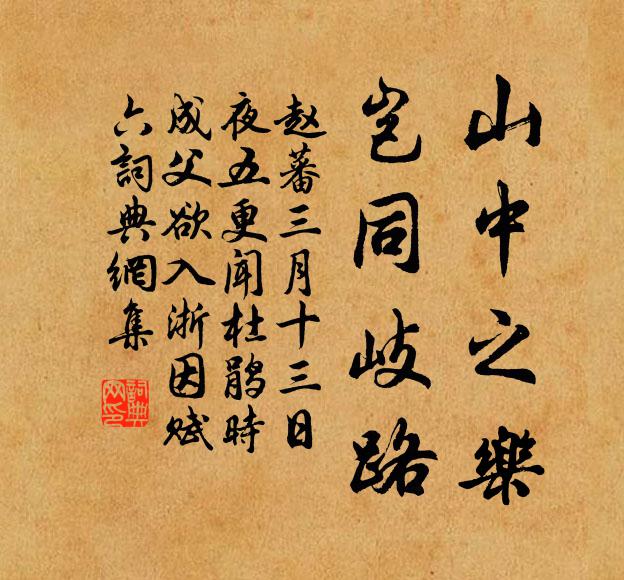 山中之樂
岂同岐路
赵蕃三月十三日
夜五更闻杜鹃時
成父欲入浙因赋
六詞典網集
詞典网印